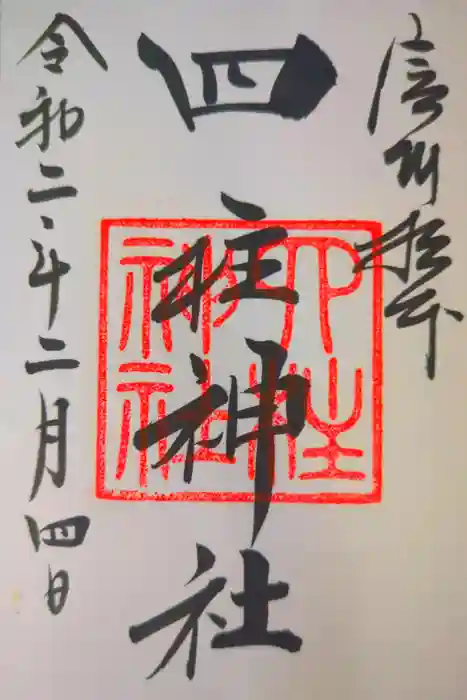 信州松本
四柱神社
四柱神社
令和二年二月四日